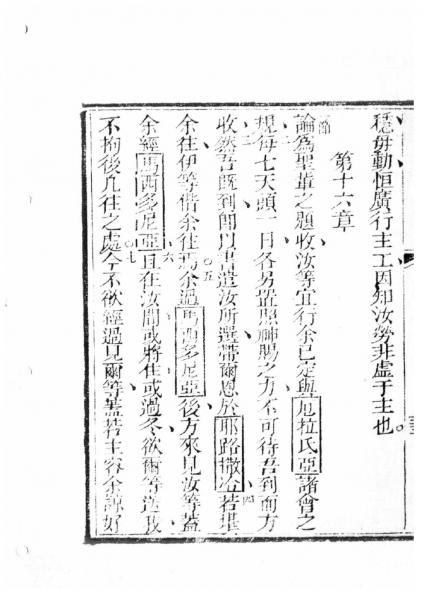 穩毋動恒廣行主工因知汝勞非虛于主也。
第十六章
論為聖輩之題收汝等宜行余已定與厄拉氏亞諸會之
規每七天頭一日各另置照神賜之方不可待吾到而方
收然吾既到即以書遣汝所選帶爾恩於耶路撒冷四若堪
余往伊等偕余往焉五余過馬西多尼亞後方來見汝等蓋
余經馬西多尼亞六且在汝間或將住或過冬欲爾等送我
不拘後凡往之處七今不欲經過見爾等蓋若主容余諒好